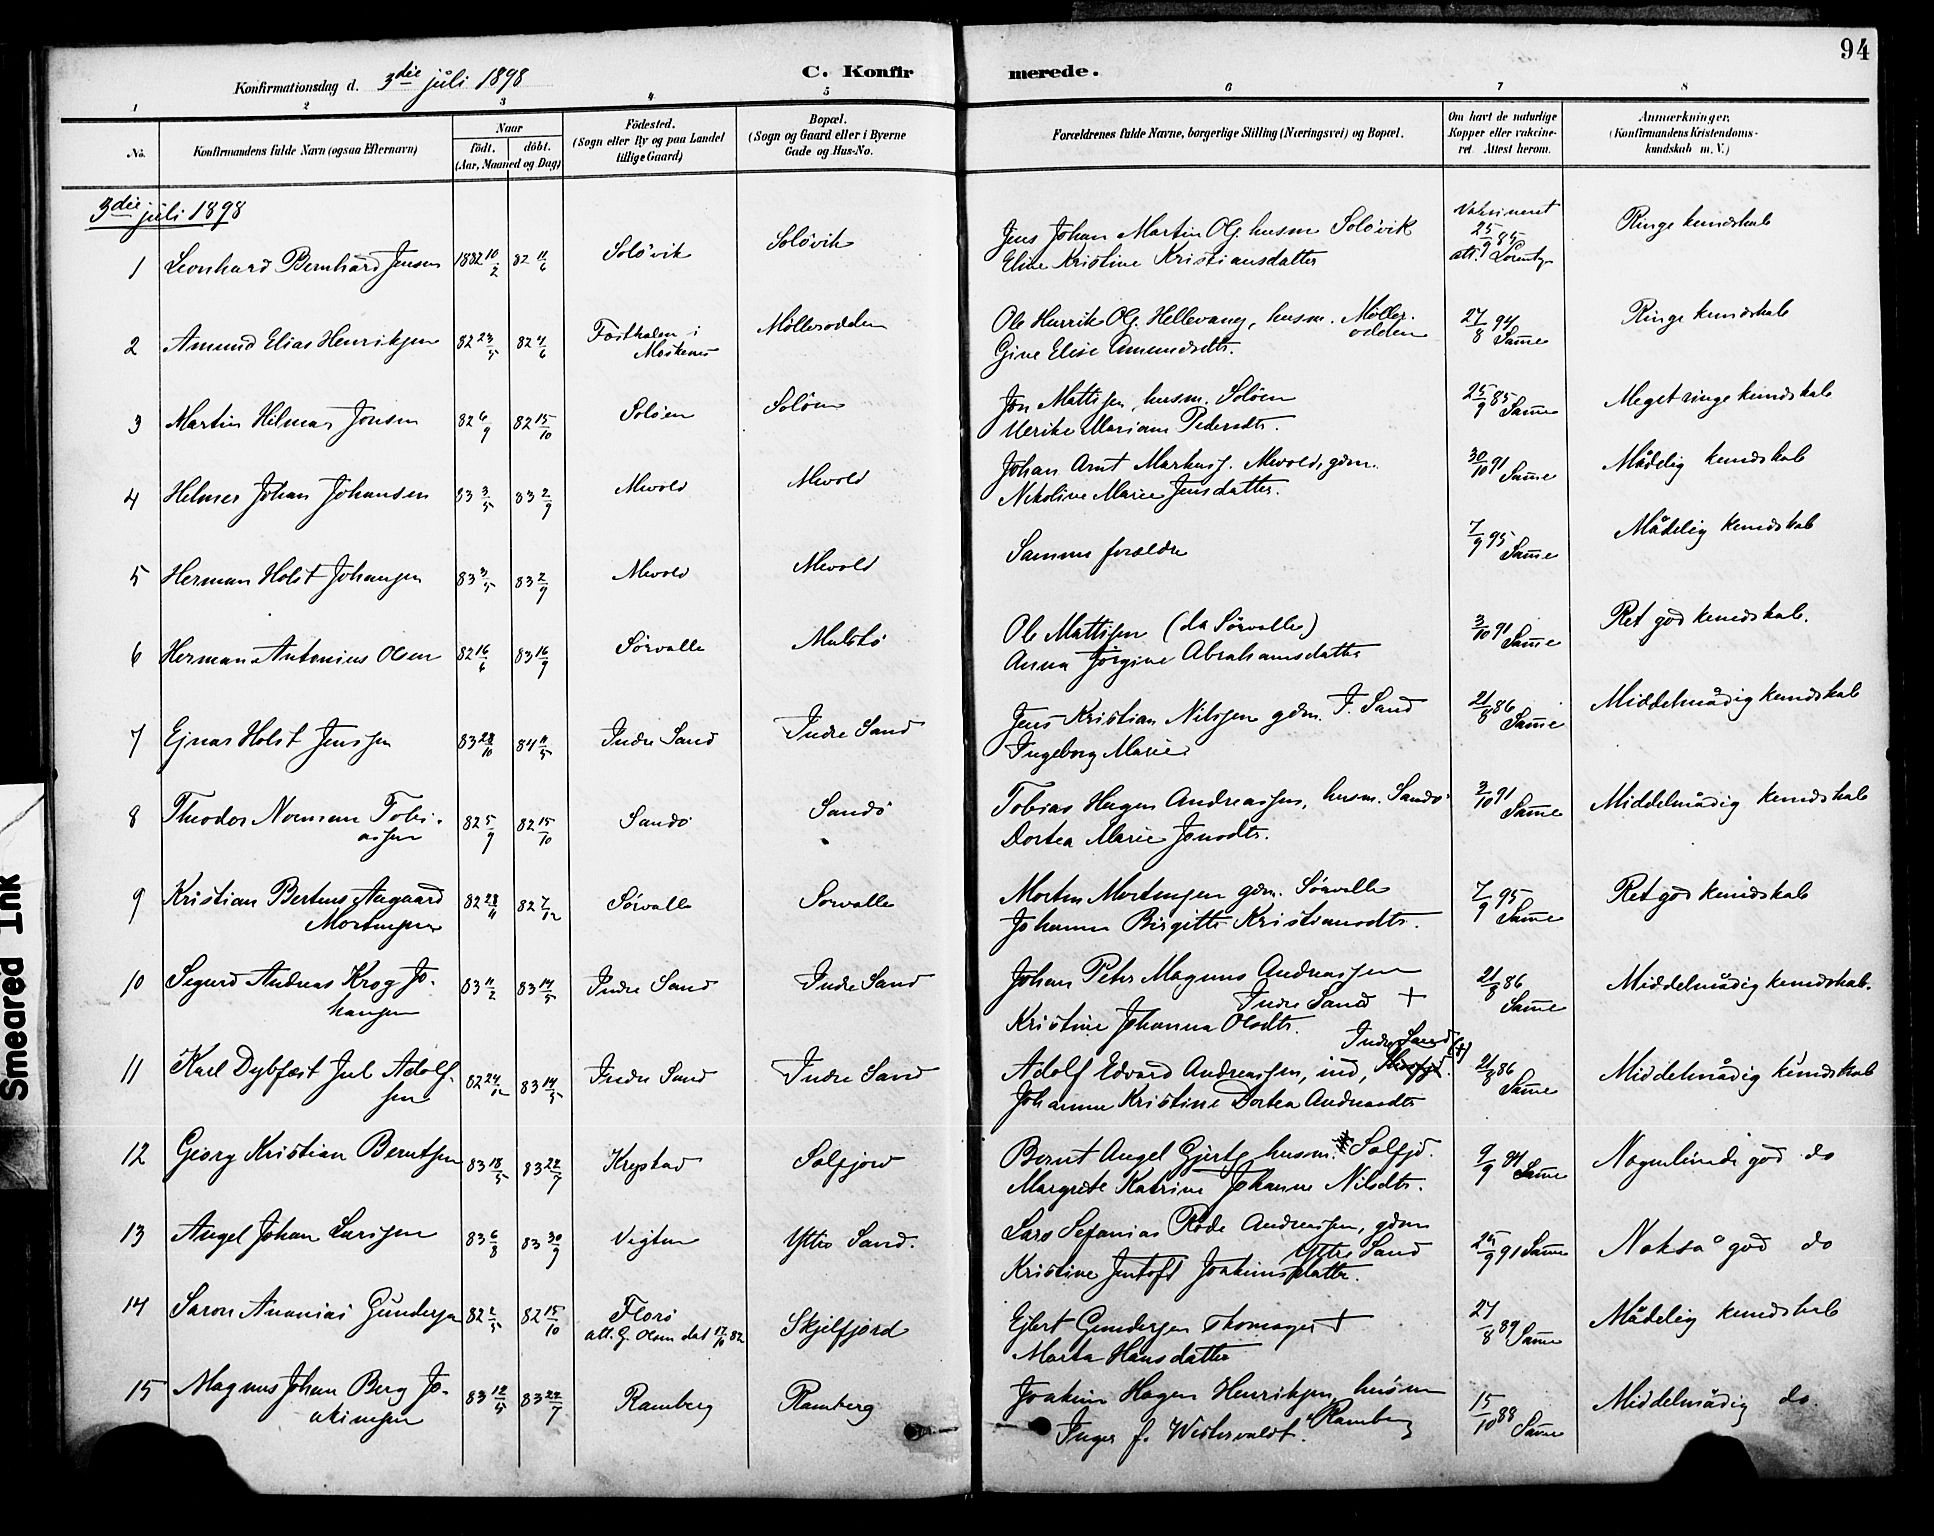 94
Konfirmationsdag d. 3die juli 1898
C. Konfirmerede.
1 2 3 4 5 6 7 8
No.
Konfirmandens fulde Navn (ogsaa Efternavn)
Naar
födt. döbt.
(Aar, Maaned og Dag)
Födested.
(Sogn eller By og paa Landet
tillige Gaard)
Bopæl.
(Sogn og Gaard eller i Byerne
Gade og Hus-No.
Forældrenes fulde Navne, borgerlige Stilling (Næringsvei) og Bopæl.
Om havt de naturlige
Kopper eller vakcine-
ret. Attest herom.
Anmærkninger.
(Konfirmandens Kristendoms-
kundskab m. V.)
3die juli 1898
1 Leonhard Bernhard Jensen 1882 10/2 82 11/6 Soløvik Soløvik
Jens Johan Martin Ols. husm Soløvik
Eline Kristine Kristiansdatter
Vaksineret 25/9 85 att. Lorentz
Ringe kundskab
2 Amund Elias Henriksen 82 23/5 82 4/6 i Moskenes Møllerodden
Ole Henrik Ols. Hellevang, husm. Møller-
odden
Gine Elise Amundsdtr.
27/8 94 Samme
Ringe kundskab
3 Martin Hilmar Jonsen 82 6/9 82 15/10 Soløen Soløen
Jon Mattisen, husm. Soløen
Ulrikke Mariane Pedersdtr.
25/9 85 Samme
Meget ringe kundskab
4 Helmer Johan Johansen 83 3/5 83 2/9 Mevold Mevold
Johan Arnt Markuss. Mevold, gdm.
Nikoline Marie Jensdatter.
30/10 91 Samme
Mådelig kundskab
5 Herman Holst Johansen 83 3/5 83 2/9 Mevold Mevold
Samme forældre
7/9 95 Samme
Mådelig kundskab
6 Herman Antonius Olsen 82 16/6 83 16/9 Sørvalle Mulstø
Ole Mattisen (da Sørvalle)
Anna Jørgine Abrahamsdatter
3/10 91 Samme
Ret god kundskab.
7 Ejnar Holst Jenssen 83 28/10 84 11/5 Indre Sand Indre Sand
Jens Kristian Nilssen gdm. I. Sand
Ingeborg Marie
21/8 86 Samme
Middelmådig kundskab
8 Theodor Norman Tobi-
assen 82 5/9 82 15/10 Sandø Sandø
Tobias Hagen Andreassen, husm. Sandø
Dortea Marie Jonsdtr.
3/10 91 Samme
Middelmådig kundskab
9 Kristian Bertens Aagaard
Mortensen 82 28/11 82 7/12 Sørvalle Sørvalle
Morten Mortensen gdm. Sørvalle
Johanna Birgitte Kristiansdtr.
7/9 95 Samme
Ret god kundskab
10 Sigurd Andreas Krog Jo-
hansen 83 11/2 83 14/5 Indre Sand Indre Sand
Johan Peter Magnus Andreassen
Indre Sand +
Kristine Johanna Olsdtr.
21/8 86
Samme
Middelmådig kundskab.
11 Karl Dybfest Jul Adolf-
sen 82 24/12 83 14/5 Indre Sand Indre Sand
Indre Sand (+)
Adolf Edvard Andreassen, ind,
Johanna Kristine Dortea Andreasdtr
21/8 86
Samme
Middelmådig kundskab
12 Georg Kristian Berntsen 83 18/5 83 22/7 Krystad Solfjord
Bernt Angel Gjerts. husm. Solfjd.
Margrete Katrine Johanne Nilsdtr.
9/9 84 Samme
Nogenlunde god do
13 Angel Johan Larssen 83 6/8 83 30/9 Vigten Yttre Sand.
Lars Sefanias Rode Andreassen, gdm
Yttre Sand
Kristine Jentoft Joakimsdatter.
26/9 91 Samme
Nokså god do
14 Saron Ananias Gundersen 82 2/5 82 15/10 Florø
att. G. Olsen dat 17/10 82 Skjelfjord
Ejlert Gundersen Thomages +
Marta Hansdatter
27/8 89 Samme
Mådelig kundskab
15 Magnus Johan Berg Jo-
akimsen 83 12/5 83 22/7 Ramberg Ramberg
Joakim Hagen Henriksen, husm
Ramberg
Inger f. Westervaldt.
15/10 88 Samme
Middelmådig do.
Smeared Ink